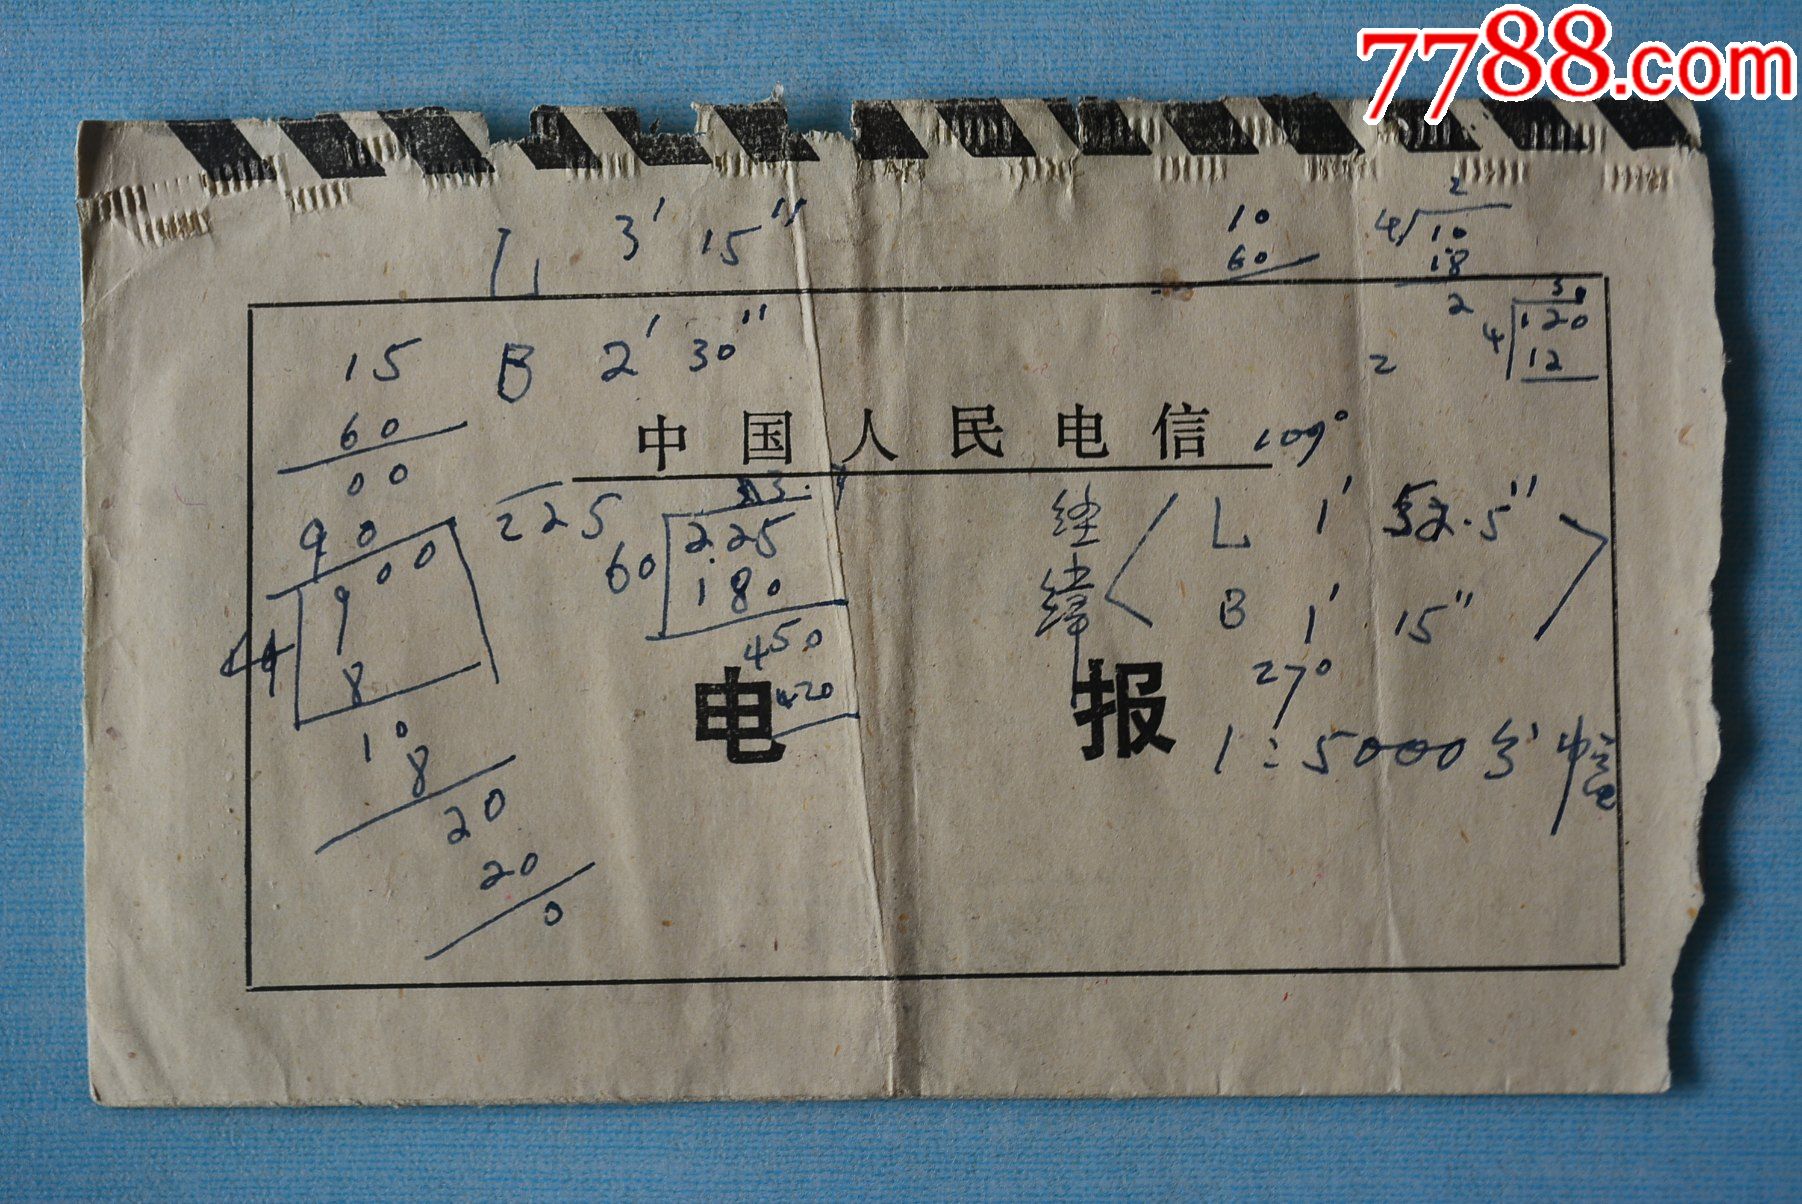 7788.com
L 3′ 15″
10
60
2
4 10
18
2
15
60
00
90
B 2′ 30″
2
30
4 120
12
中国人民电信
109°
225
60 225
180
450
420
900
9
8
10
8
20
20
0
经 L 1′ 52.5″
纬 B 1′ 15″
27°
电报
1:5000